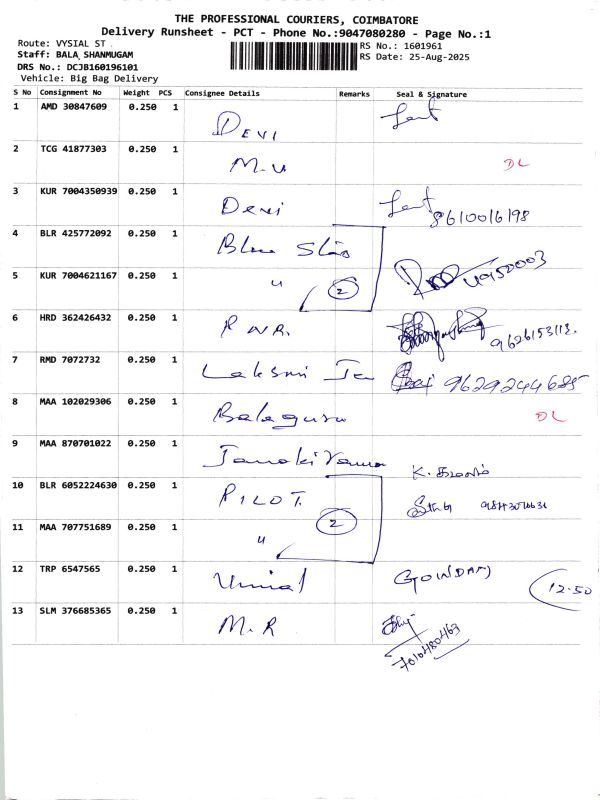 THE PROFESSIONAL COURIERS, COIMBATORE
Delivery Runsheet - PCT - Phone No.:9047080280 - Page No.:1
Route: VYSIAL ST
Staff: BALA SHANMUGAM
DRS No.: DCJB160196101
Vehicle: Big Bag Delivery
RS No.: 1601961
RS Date: 25-Aug-2025
S No Consignment No Weight PCS Consignee Details Remarks Seal & Signature
1 AMD 30847609 0.250 1 DEVI
2 TCG 41877303 0.250 1 M.U DL
3 KUR 7004350939 0.250 1 Devi 8610016198
4 BLR 425772092 0.250 1 Blue Star
5 KUR 7004621167 0.250 1 " 2
6 HRD 362426432 0.250 1 9626153112.
7 RMD 7072732 0.250 1 Laksmi 9629244685
8 MAA 102029306 0.250 1 Balaguru DL
9 MAA 870701022 0.250 1 Janaki Rama
10 BLR 6052224630 0.250 1 PILOT.
11 MAA 707751689 0.250 1 " 2
12 TRP 6547565 0.250 1 12.50
13 SLM 376685365 0.250 1 M.R
7010480463